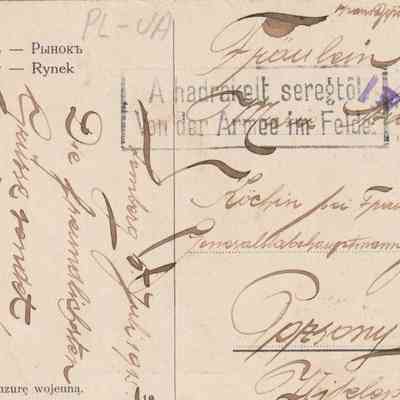 PL-UA
— Рынокъ
— Rynek
A hadrakelt seregtől
Von der Armee im Felde.
Fräulein
Köchin bei Frau
Generalstabshauptmann
Pozsony
Lemberg 5 Juli 1915
Die freundlichsten
Grüsse sendet
nzurę wojenną.